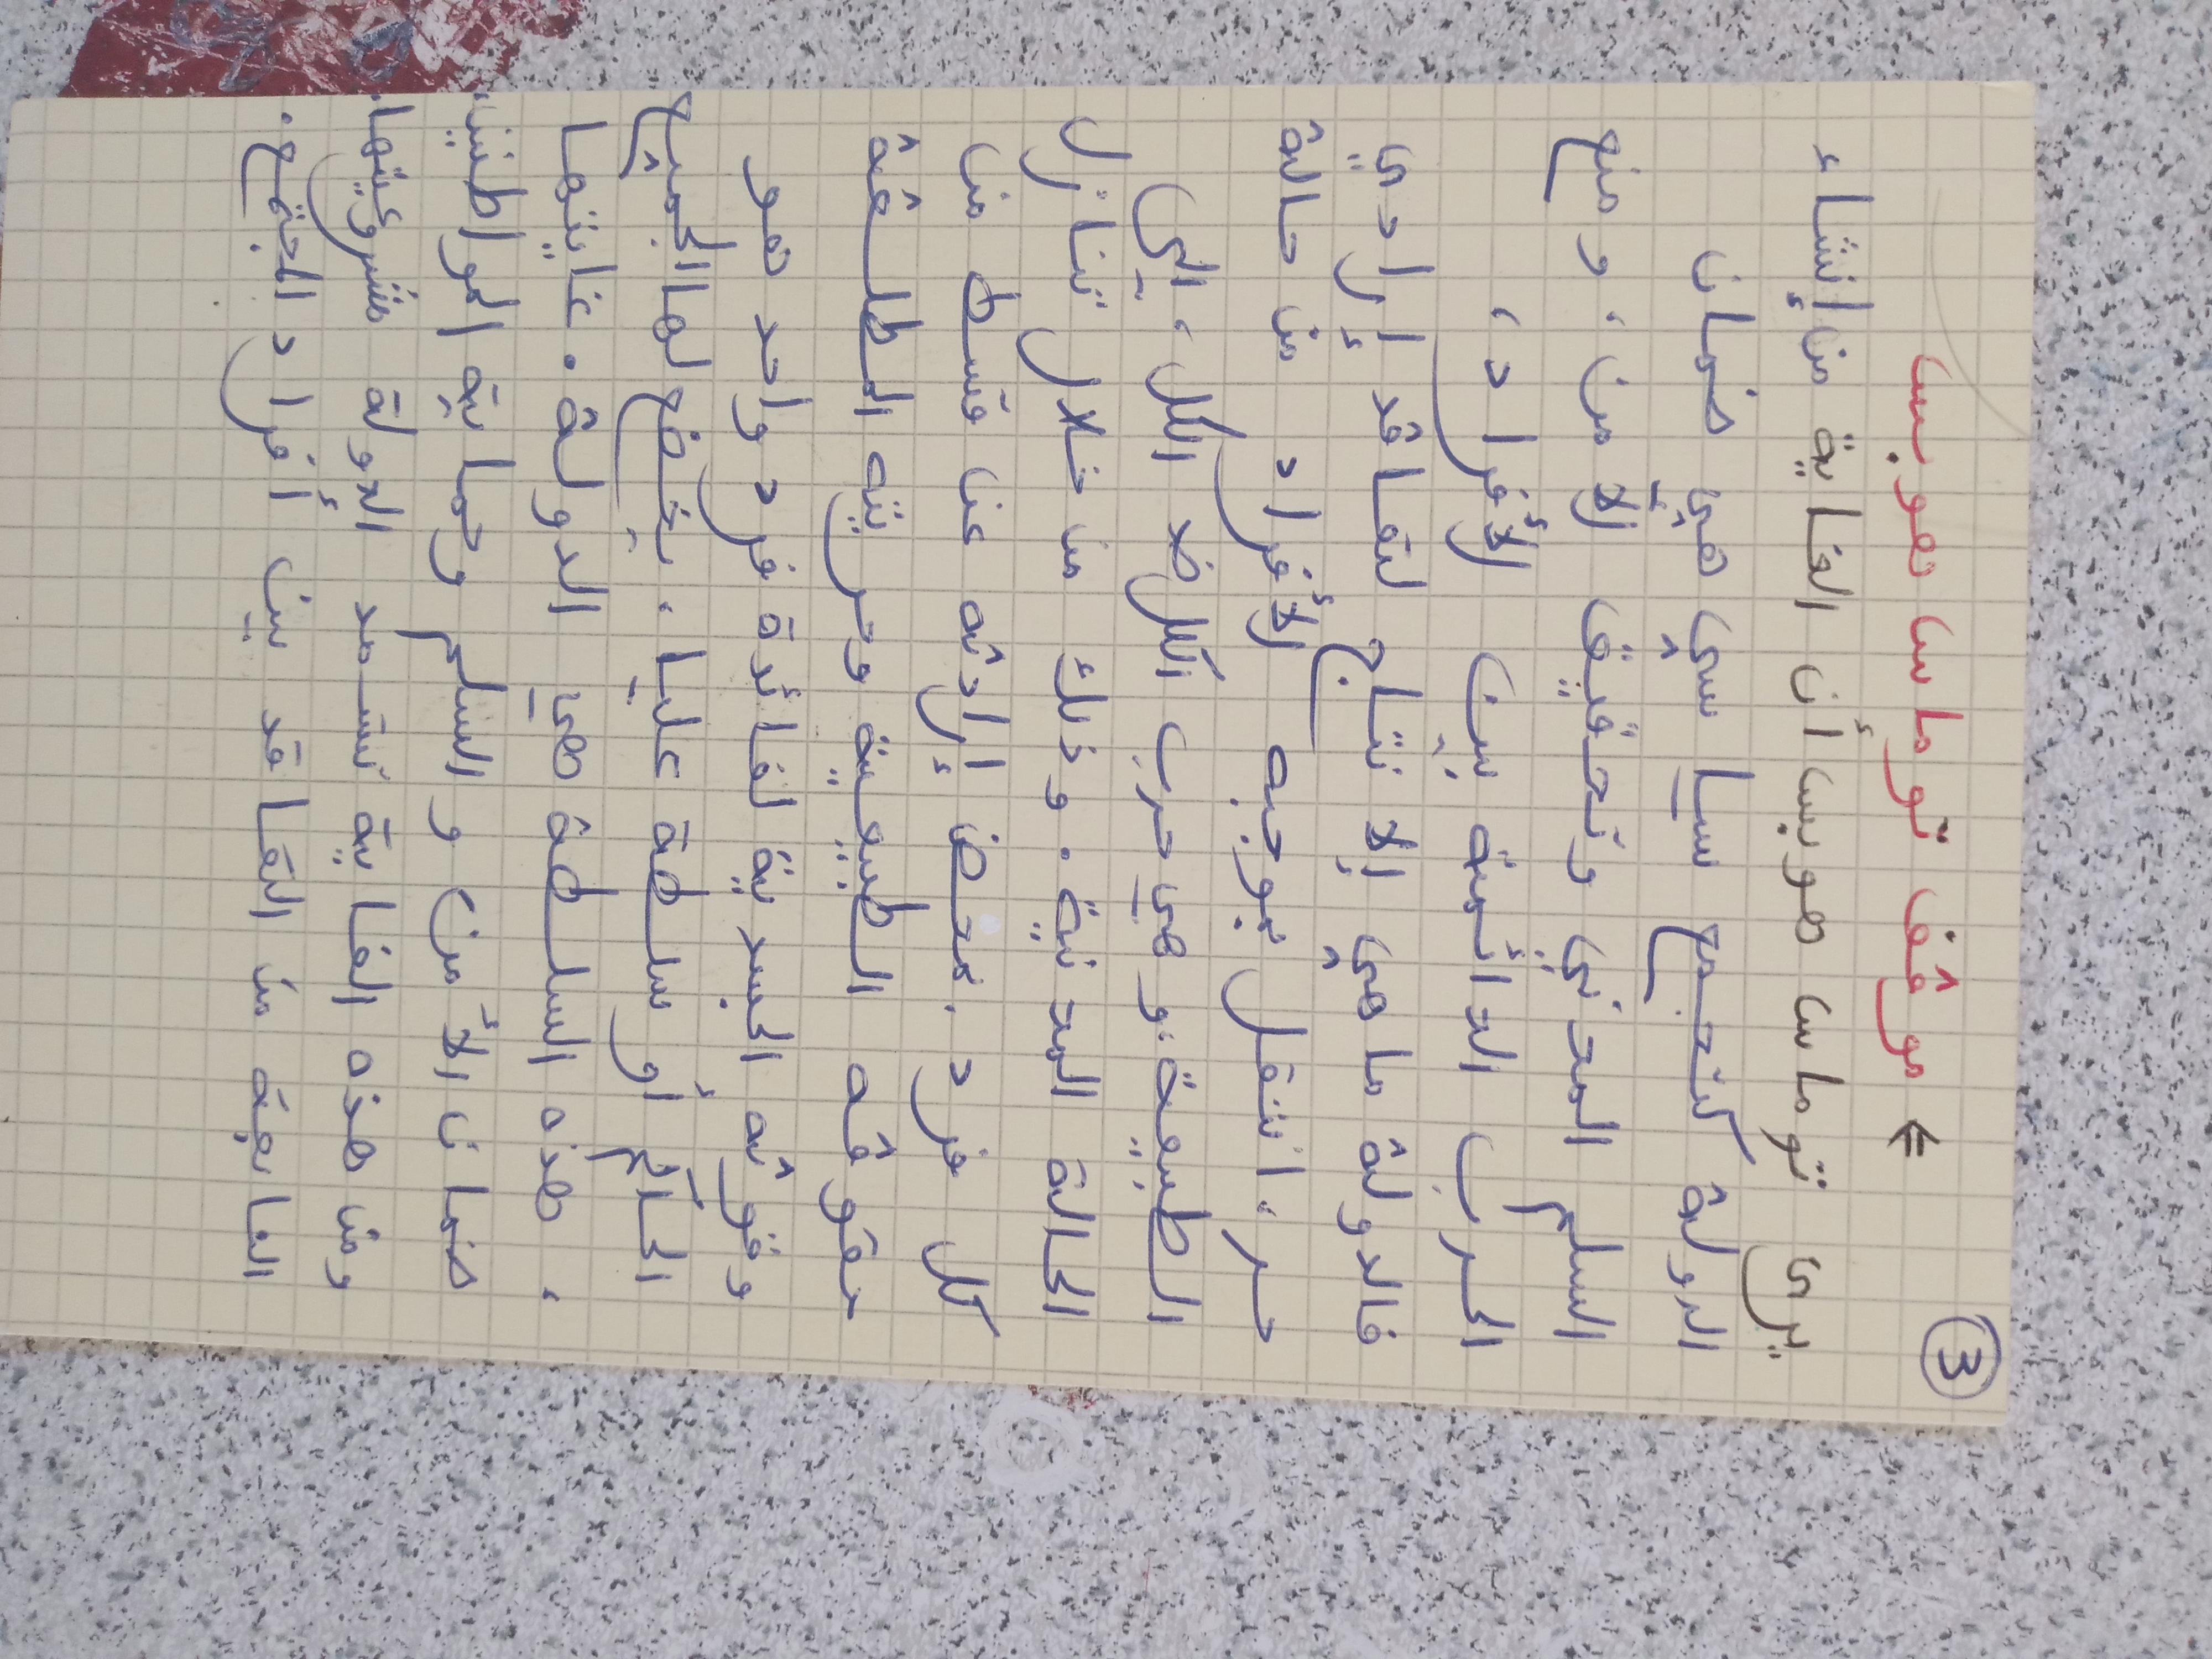 ③
⇐ موقف توماس هوبس
يرى توماس هوبس أن الغاية من إنشاء
الدولة كتجمع سياسي هي ضمان
السلم المدني وتحقيق الأمن، ومنع
الحرب الدائمة بين الأفراد،
فالدولة ما هي إلا نتاج لتعاقد إرادي
حر، انتقل بموجبه الأفراد من حالة
الطبيعة، وهي حرب الكل ضد الكل، إلى
الحالة المدنية. وذلك من خلال تنازل
كل فرد بمحض إرادته عن قسط من
حقوقه الطبيعية وحريته المطلقة
وقوته الجسدية لفائدة فرد واحد هو
الحاكم أو سلطة عليا، يخضع لها الجميع
، هذه السلطة هي الدولة. غايتها
ضمان الأمن و السلم وحماية المواطنين،
ومن هذه الغاية تستمد الدولة مشروعيتها.
النابعة من التعاقد بين أفراد المجتمع.